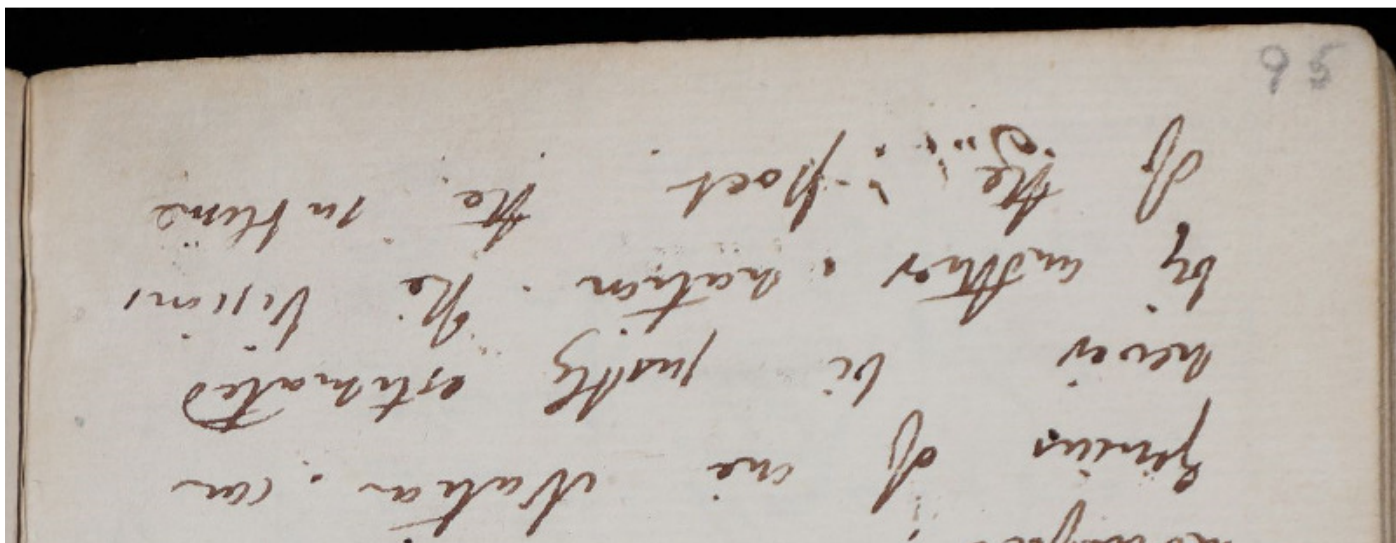 95
Genius of one Nation . can
never be justly estimated
by another nation . The Visions
of the poet . the sublime